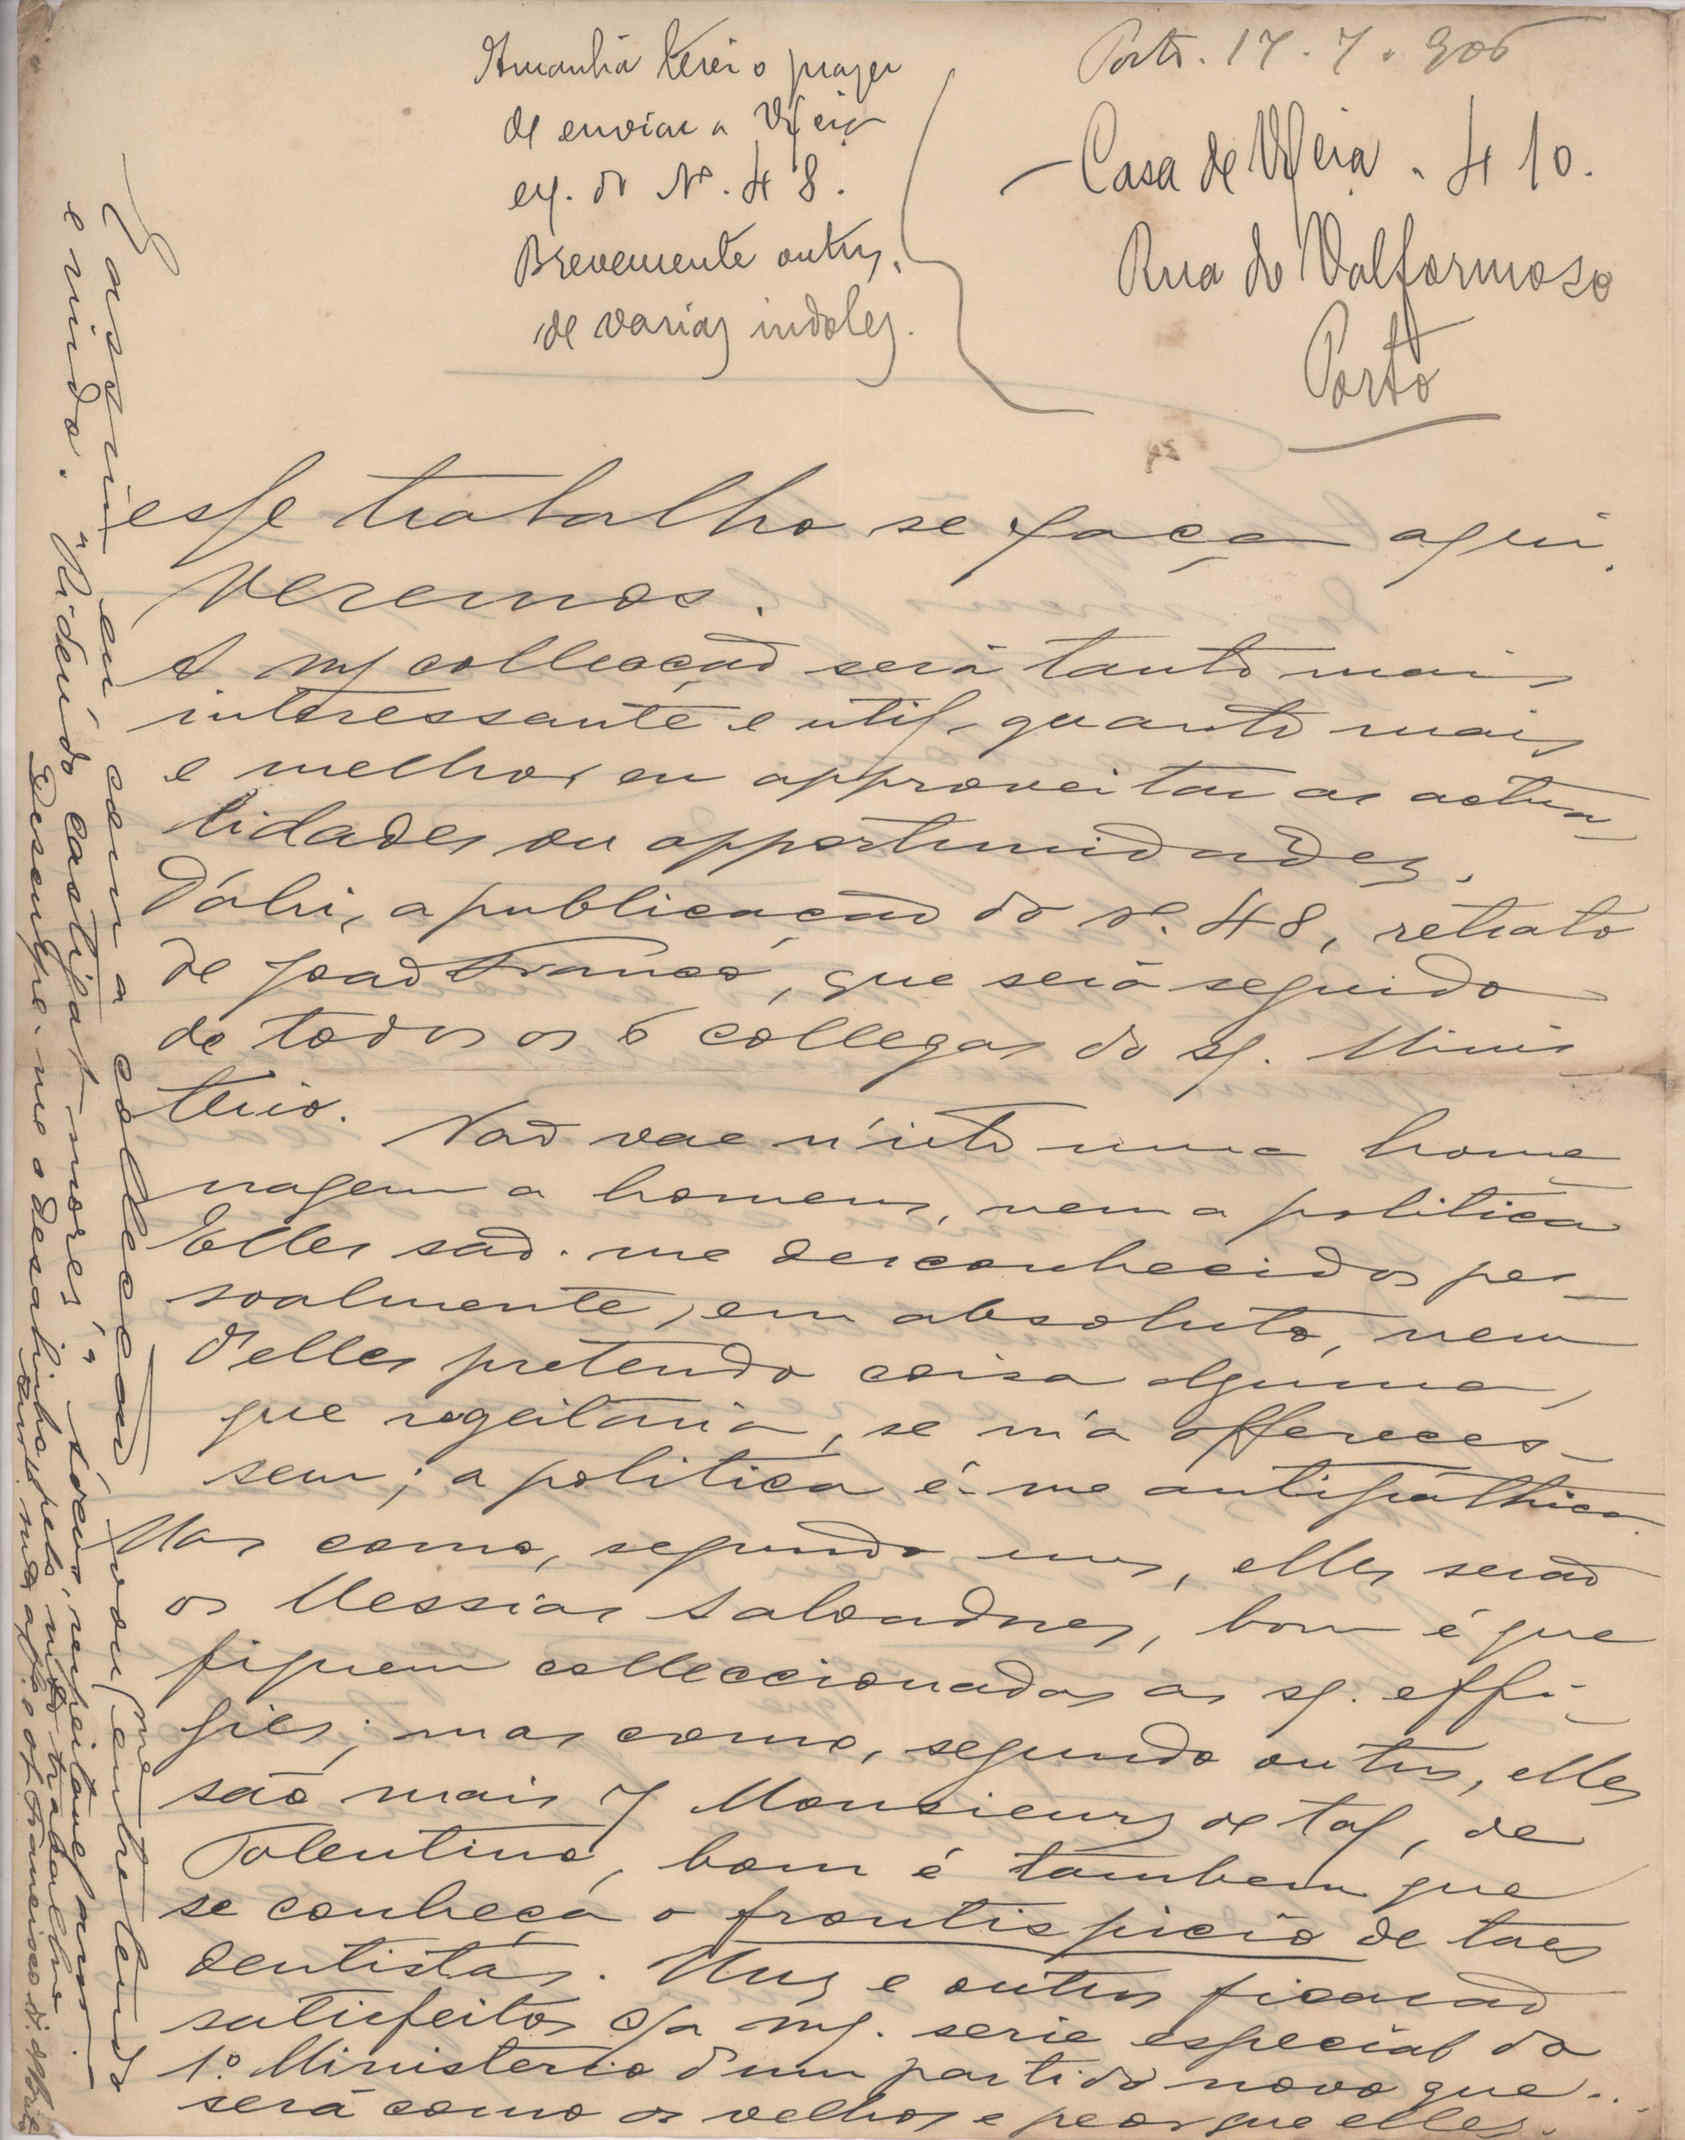 Porto. 17. 7. 906
Casa de V. Exia. 410.
Rua do Valformoso
Porto
Amanhã terei o prazer
de enviar a V. Exia
ex. do Nº. 48.
Brevemente outros,
de varias indoles.
esse trabalho se faça aqui.
Veremos.
A mª collecção será tanto mais
interessante e util, quanto mais
e melhor eu approveitar as actua-
lidades ou opportunidades.
D'áhi, a publicação do nº. 48, retrato
de João Franco, que será seguido
de todos os 6 collegas do sº. Minis
terio. Não vae n'isto uma home-
nagem a homens, nem a politica
Elles são-me desconhecidos pes-
soalmente, em absoluto, nem
d'elles pretendo coisa alguma,
que regeitaria, se m'a offereces-
sem; a politica é-me antipáthica.
Mas como, segundo uns, elles serão
os Messias salvadores, bom é que
fiquem colleccionadas as sª. effi-
gies; mas como, segundo outros, elles
são mais 7 Monsieurs de tal, de
Tolentino, bom é tambem que
se conheça o frontispicio de taes
dentistas. Uns e outros ficarão
satisfeitos c/a mª. serie especial do
1º. Ministerio d'um partido novo que..
será como os velhos e peor que elles.
E assim eu com a collecção vou-me entretendo
e rindo. "Ridendo castigat mores",
Desculpe-me o desalinho pelo mtº trabalho.
affº. e obº. Francisco d'